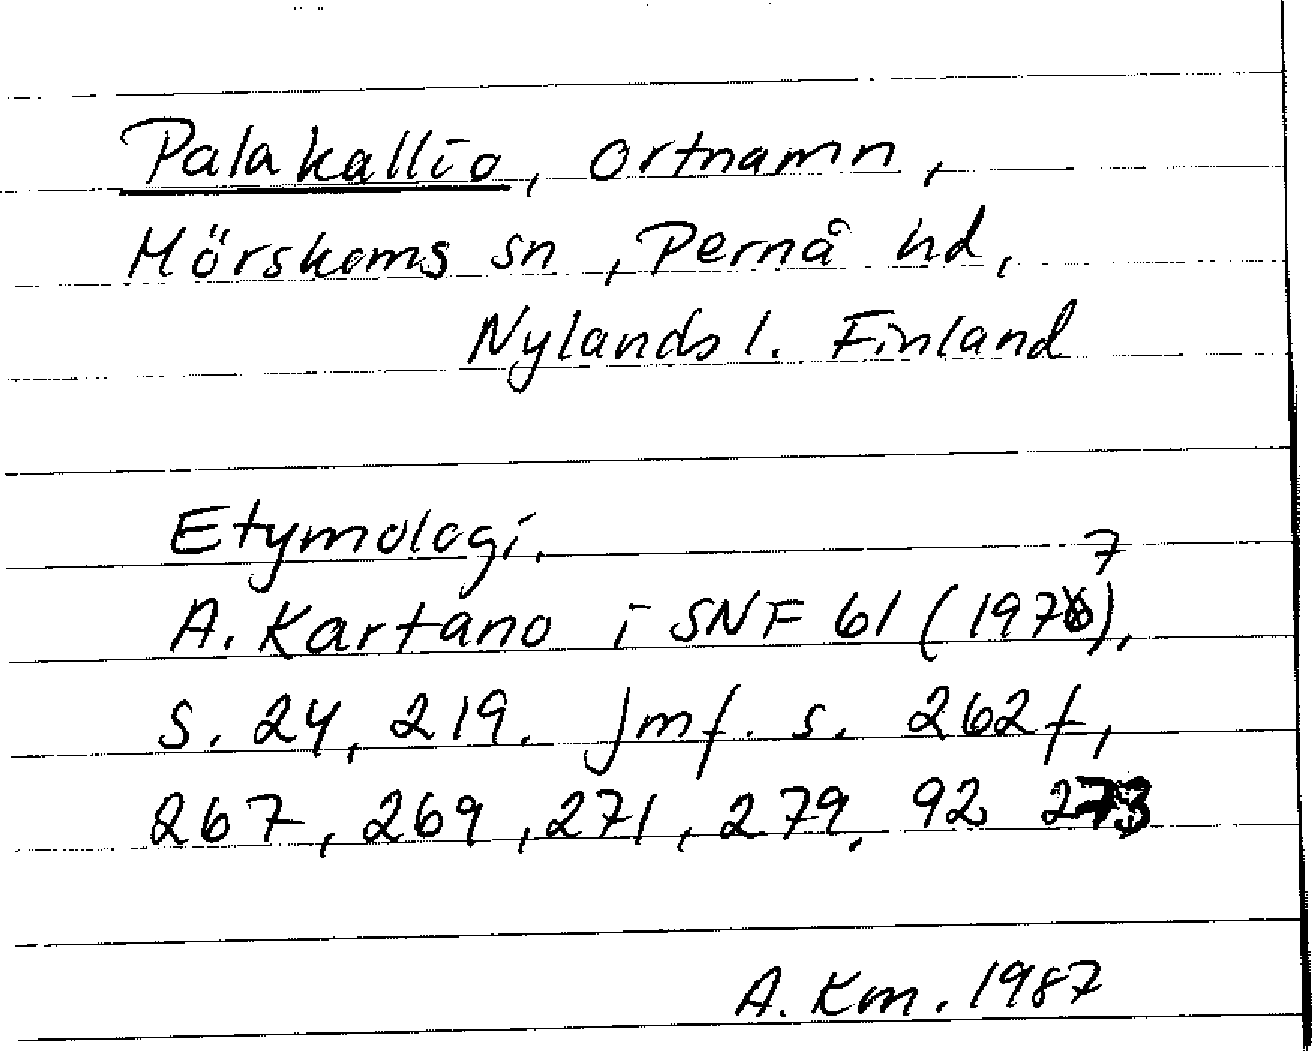 Palakallio, ortnamn,
Mörskoms sn, Pernå hd,
Nylands l. Finland
Etymologi.
A. Kartano i SNF 61 (1977),
s. 24, 219. Jmf. s. 262 f,
267, 269, 271, 279. 92 273
A. Km. 1987